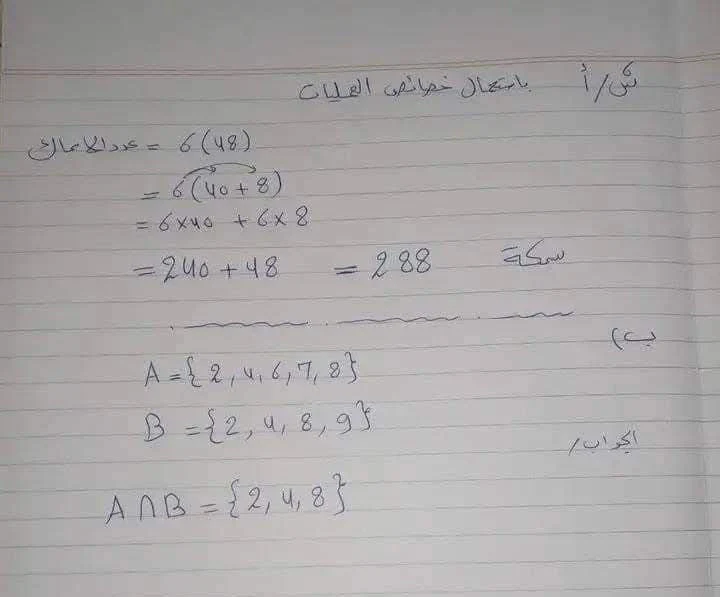 س/أ باستعمال خصائص العمليات
عدد الاسماك = 6(48)
= 6(40 + 8)
= 6×40 + 6×8
= 240 + 48 = 288 سمكة
ب)
A = {2, 4, 6, 7, 8}
B = {2, 4, 8, 9}
الجواب/
A ∩ B = {2, 4, 8}